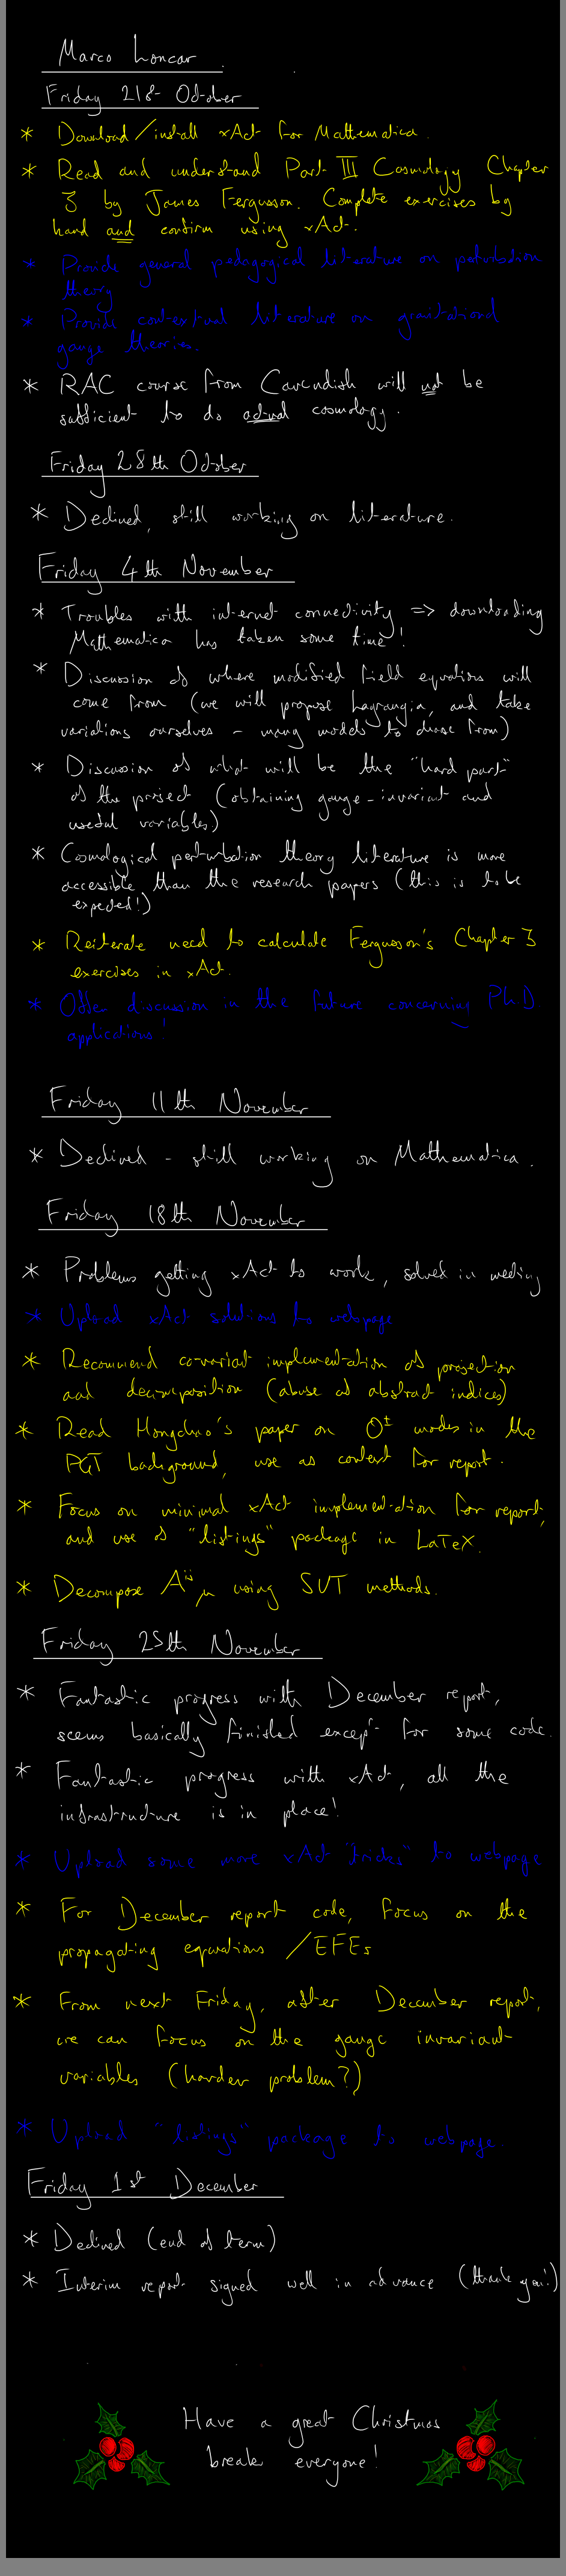 Marco Loncar
Friday 21st October
* Download/install xAct for Mathematica.
* Read and understand Part III Cosmology Chapter
3 by James Fergusson. Complete exercises by
hand and confirm using xAct.
* Provide general pedagogical literature on perturbation
theory
* Provide contextual literature on gravitational
gauge theories.
* RAC course from Cavendish will not be
sufficient to do actual cosmology.
Friday 28th October
* Declined, still working on literature.
Friday 4th November
* Troubles with internet connectivity => downloading
Mathematica has taken some time!
* Discussion of where modified field equations will
come from (we will propose Lagrangia, and take
variations ourselves - many models to choose from)
* Discussion of what will be the "hard part"
of the project (obtaining gauge-invariant and
useful variables)
* Cosmological perturbation theory literature is more
accessible than the research papers (this is to be
expected!)
* Reiterate need to calculate Fergusson's Chapter 3
exercises in xAct.
* Offer discussion in the future concerning Ph.D
applications!
Friday 11th November
* Declined - still working on Mathematica.
Friday 18th November
* Problems getting xAct to work, solved in meeting
* Upload xAct solutions to webpage
* Recommend co-variant implementation of projection
and decomposition (abuse of abstract indices)
* Read Hongchao's paper on 0± modes in the
PGT background, use as context for report.
* Focus on minimal xAct implementation for report,
and use of "listings" package in LaTeX.
* Decompose A^{ij}_μ using SVT methods.
Friday 25th November
* Fantastic progress with December report,
seems basically finished except for some code.
* Fantastic progress with xAct, all the
infrastructure is in place!
* Upload some more xAct "tricks" to webpage
* For December report code, focus on the
propagating equations /EFEs
* From next Friday, after December report,
we can focus on the gauge invariant
variables (harder problem?)
* Upload "listings" package to webpage.
Friday 1st December
* Declined (end of term)
* Interim report signed well in advance (thank you!)
Have a great Christmas
break everyone!